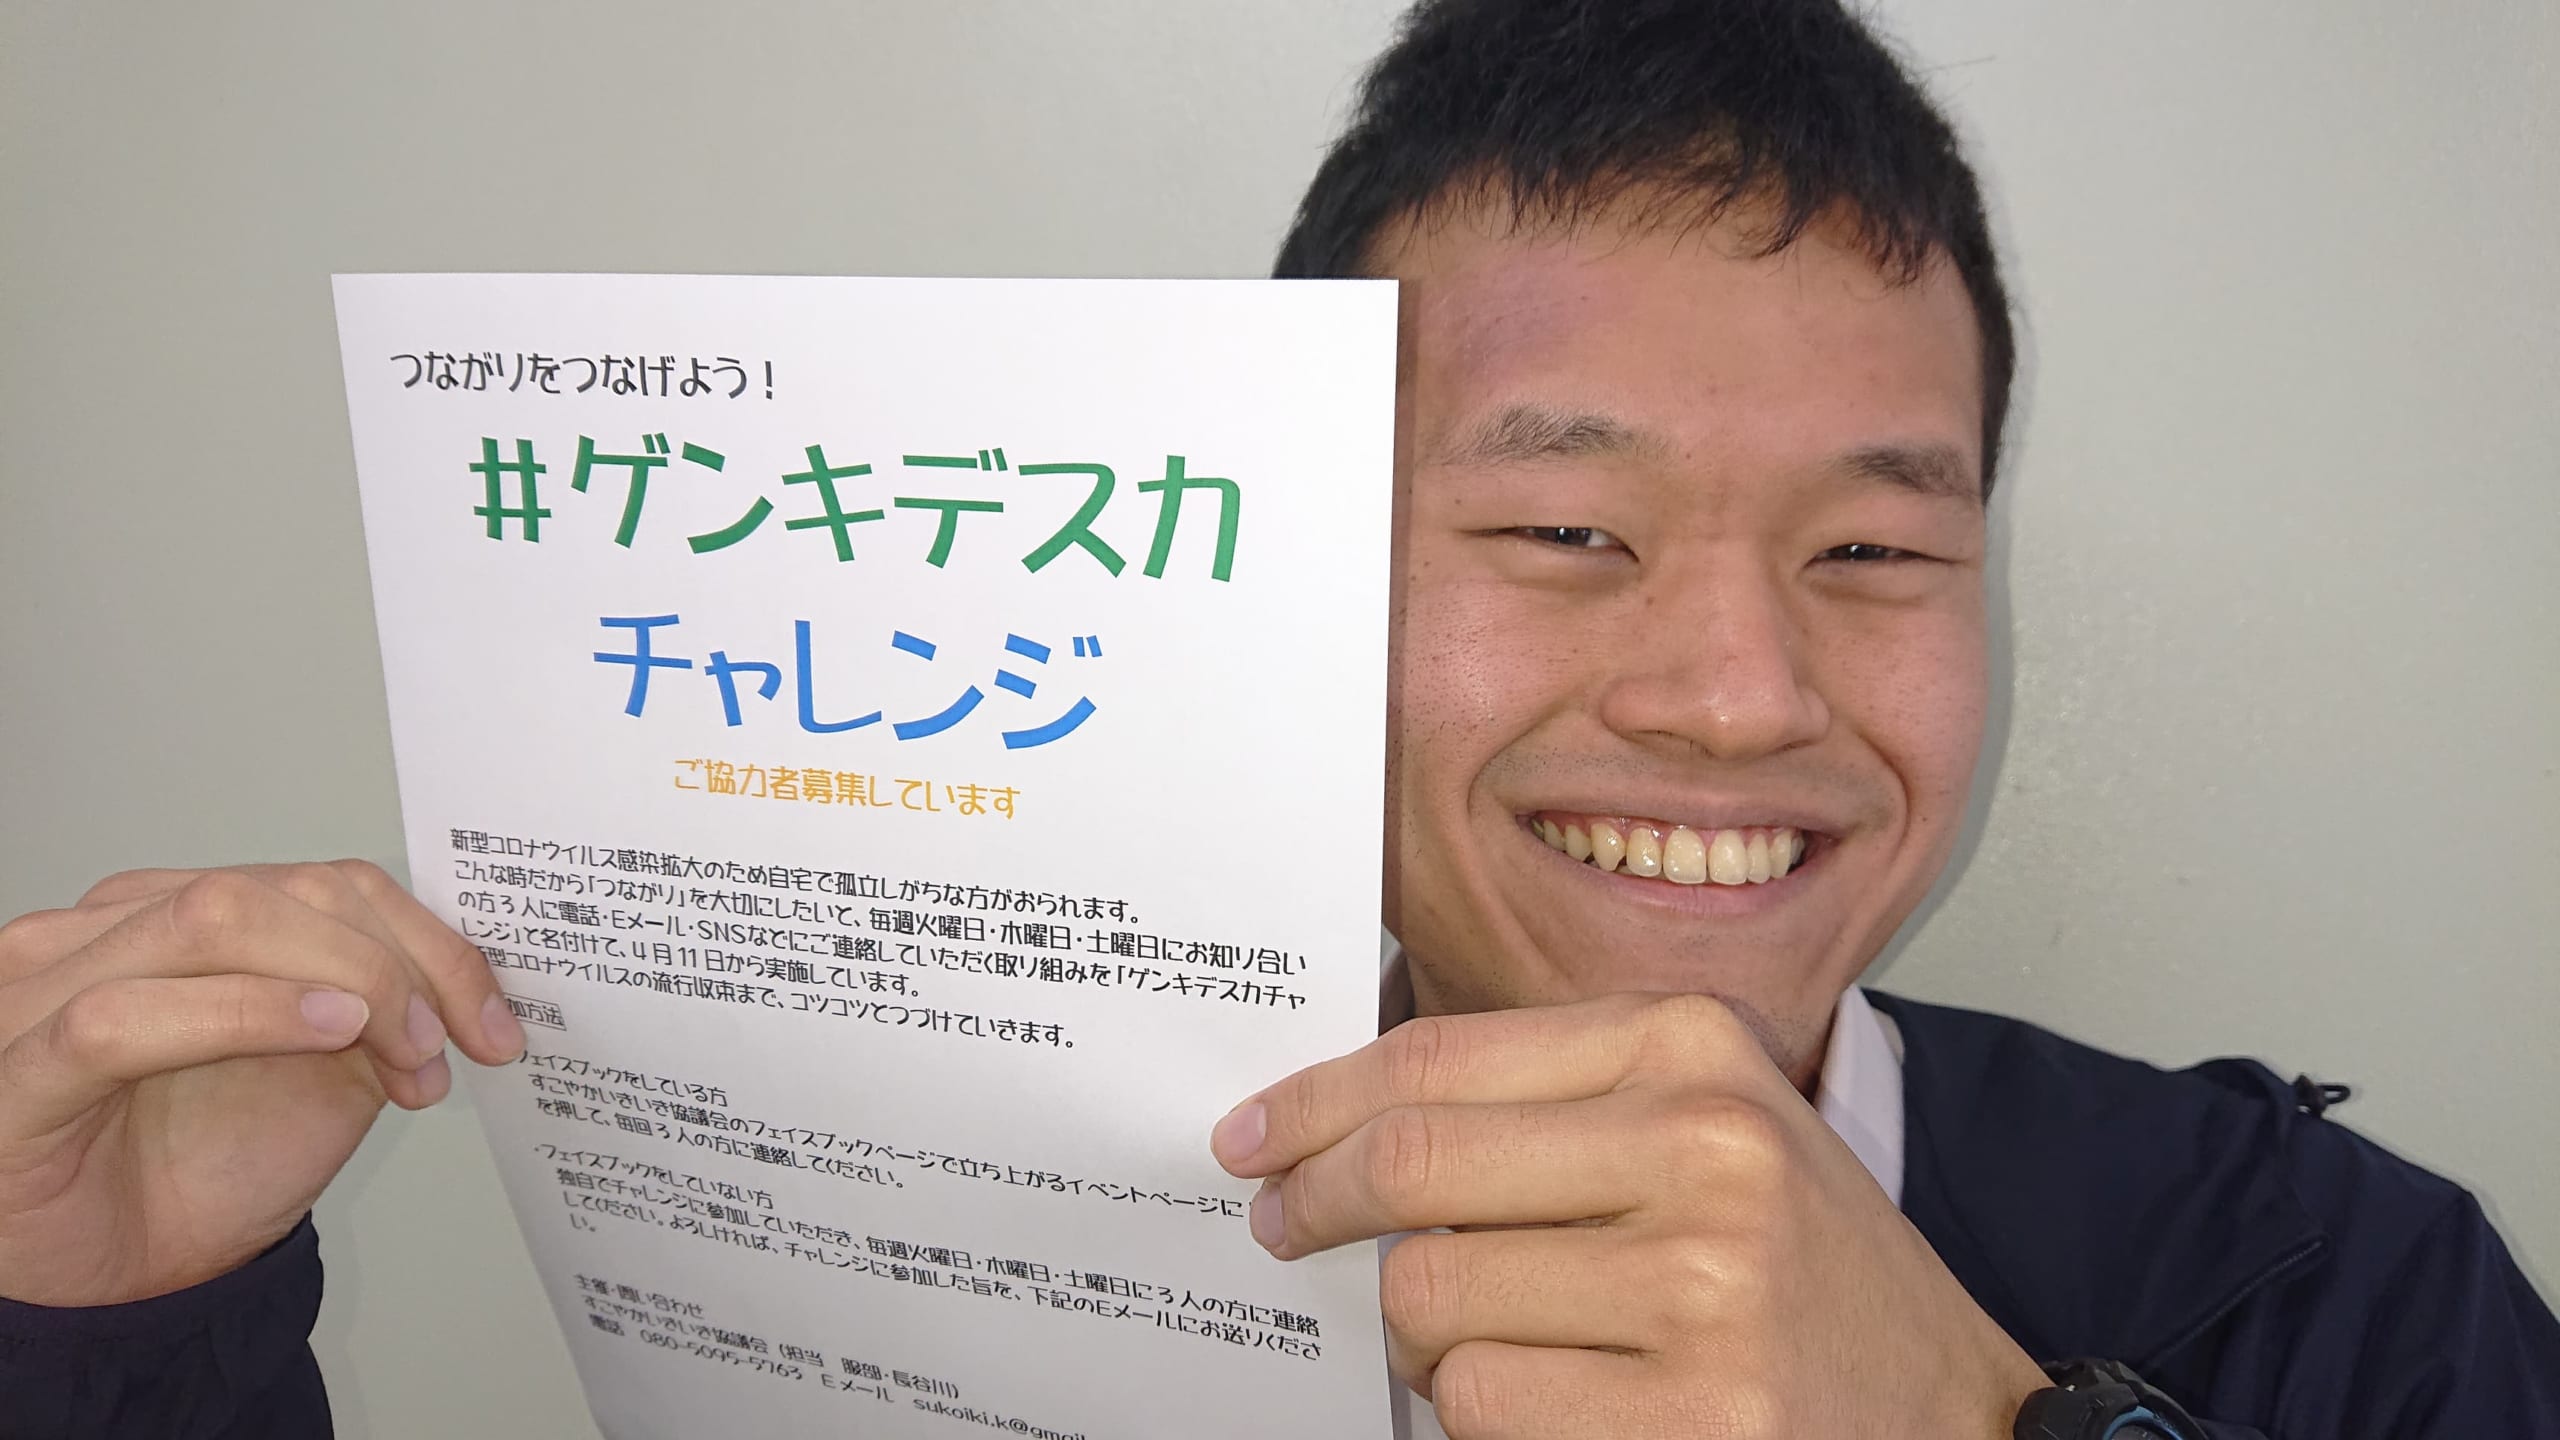 つながりをつなげよう!
#ゲンキデスカ
チャレンジ
ご協力者募集しています
新型コロナウイルス感染拡大のため自宅で孤立しがちな方がおられます。
こんな時だから「つながり」を大切にしたいと、毎週火曜日・木曜日・土曜日にお知り合い
の方3人に電話・Eメール・SNSなどにご連絡していただく取り組みを「ゲンキデスカチャ
レンジ」と名付けて、4月11日から実施しています。
型コロナウイルスの流行収束まで、コツコツとつづけていきます。
加方法
フェイスブックをしている方
すこやかいきいき協議会のフェイスブックページで立ち上がるイベントページに
を押して、毎回3人の方に連絡してください。
・フェイスブックをしていない方
独自でチャレンジに参加していただき、毎週火曜日・木曜日・土曜日に3人の方に連絡
してください。よろしければ、チャレンジに参加した旨を、下記のEメールにお送りくださ
い。
主催・問い合わせ
すこやかいきいき協議会(担当 服部・長谷川)
電話 080-5095-5763 Eメール sukoiki.k@gmail